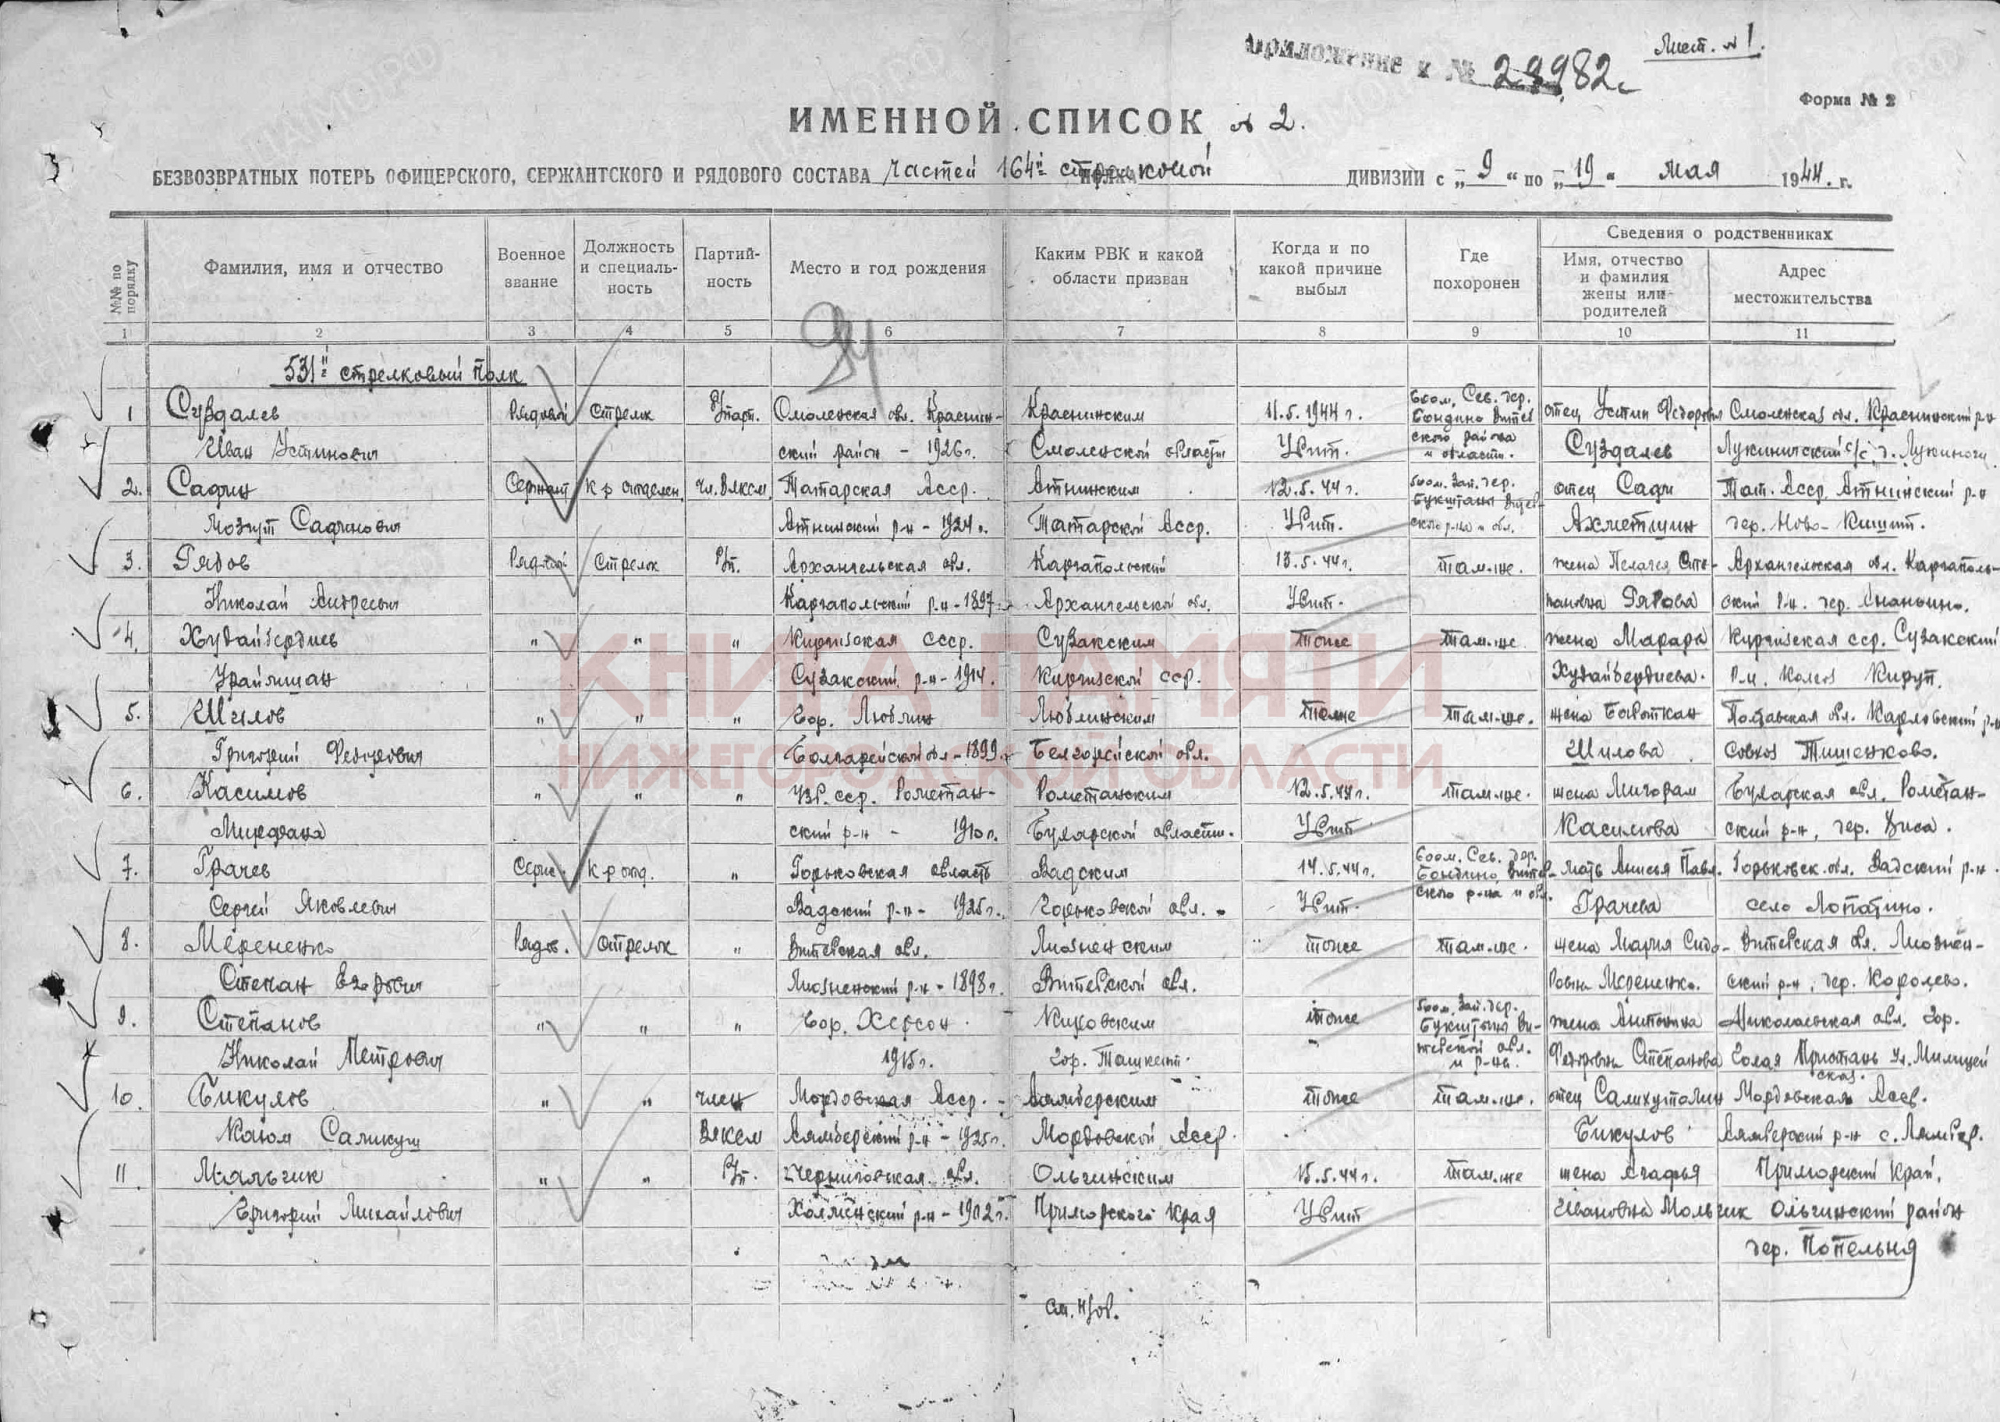 Приложение к № 28982с
Лист. № 1.
Форма № 2
ИМЕННОЙ СПИСОК № 2.
БЕЗВОЗВРАТНЫХ ПОТЕРЬ ОФИЦЕРСКОГО, СЕРЖАНТСКОГО И РЯДОВОГО СОСТАВА частей 164й стрелковой ДИВИЗИИ с „9“ по „19“ мая 1944. г.
№№ по порядку
Фамилия, имя и отчество
Военное звание
Должность и специальность
Партийность
Место и год рождения
Каким РВК и какой области призван
Когда и по какой причине выбыл
Где похоронен
Сведения о родственниках
Имя, отчество и фамилия жены или родителей
Адрес местожительства
1 2 3 4 5 6 7 8 9 10 11
531й стрелковый полк
1 Суздалев Рядовой Стрелок Б/парт. Смоленская обл. Краснин- Краснинским 11.5.1944 г. 500м. Сев. дер. Бондино Витеб отец Устин Федоров Смоленская обл. Краснинский р-н
Иван Устинович ский район - 1926г. Смоленской области Убит. ского района и области. Суздалев Лукиничский с/с, д. Лукиничи
2. Садин Сержант К-р отделен. чл. влксм. Татарская Асср. Атнинским 12.5.44г. 500м. Зап. дер. отец Сади Тат. Асср Атнинский р-н
Садинович Атнинский р-н - 1924г. Татарской Асср. Убит. ского р-на и обл. Ахметшин дер. Ново-Кишит.
3. Рядов Рядовой Стрелок Б/п. Архангельская обл. Каргапольский 13.5.44г. там-же. жена Пелагея Архангельская обл. Каргаполь-
Николай Андреевич Каргапольский р-н - 1897г. Архангельской обл. Убит. Рядова ский р-н. дер. Ананьино.
4. Худайбердиев " " " Киргизская сср. Сузакским тоже там-же. жена Марара Киргизская сср. Сузакский
Урайлишан Сузакский р-н - 1914. Киргизской сср. Худайбердиева. р-н. Колхоз Кируп.
5. Шилов " " " гор. Люблин Люблинским тоже там-же. жена Полтавская обл. Карловский р-н
Григорий Федорович 1899 обл. Шилова совхоз Тишенково.
6. Касимов " " " Узб. сср. Рометан- Рометанским 12.5.44г. там-же. жена Мигорам Бухарская обл. Рометан-
ский р-н - 1910г. Бухарской области. Убит Касимова ский р-н, дер.
7. Грачев Серж. К-р отд. " Горьковская область Вадским 14.5.44г. 500м. Сев. дер. Бондино Витеб- мать Анисья Павл. Горьковск. обл. Вадский р-н.
Сергей Яковлевич Вадский р-н - 1925г. Горьковской обл. Убит. ского р-на и обл. Грачева село Лопатино.
8. Мерененко Рядов. Стрелок " Витебская обл. Лиозненским тоже там-же. жена Мария Сидо- Витебская обл. Лиознен-
Степан Егорович Лиозненский р-н - 1898г. Витебской обл. ровна Мерененко. ский р-н, дер. Королево.
9. Степанов " " " гор. Херсон. Кировским тоже 500м. Зап. дер. жена Антонина Николаевская обл. гор.
Николай Петрович 1915г. гор. Ташкент. тебской обл. и р-на. Федоровна Степанова Голая Пристань ул. Милицей
ская.
10. Бикулов " " член Мордовская Асср. - Лямберским тоже там-же. отец Мордовская Асср.
Каюм ВЛКСМ Лямберский р-н - 1925г. Мордовской Асср. Бикулов Лямберский р-н с. Лямбер.
11. Мальчик " " Б/п. Черниговская обл. Ольгинским 15.5.44г. там-же жена Агафья Приморский Край.
Григорий Михайлович Холменский р-н - 1902г. Приморского края Убит Ивановна Мальчик Ольгинский район
дер. Попельня
см. н/об.
КНИГА ПАМЯТИ
НИЖЕГОРОДСКОЙ ОБЛАСТИ